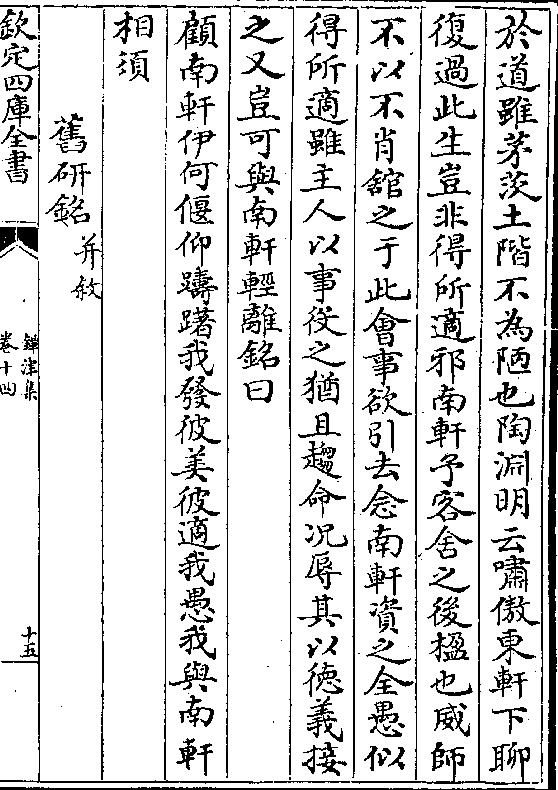 於道雖茅茨土階不為陋也陶淵明云嘯傲東軒下聊
復過此生豈非得所適邪南軒予客舍之後楹也威師
不以不肖舘之于此會事欲引去念南軒資之全愚似
得所適雖主人以事役之猶且趨命况辱其以德義接
之又豈可與南軒輕離銘曰
顧南軒伊何偃仰躊躇我發彼美彼適我愚我與南軒
相湏
舊研銘并敘
欽定四庫全書
鐔津集
卷十四
十五